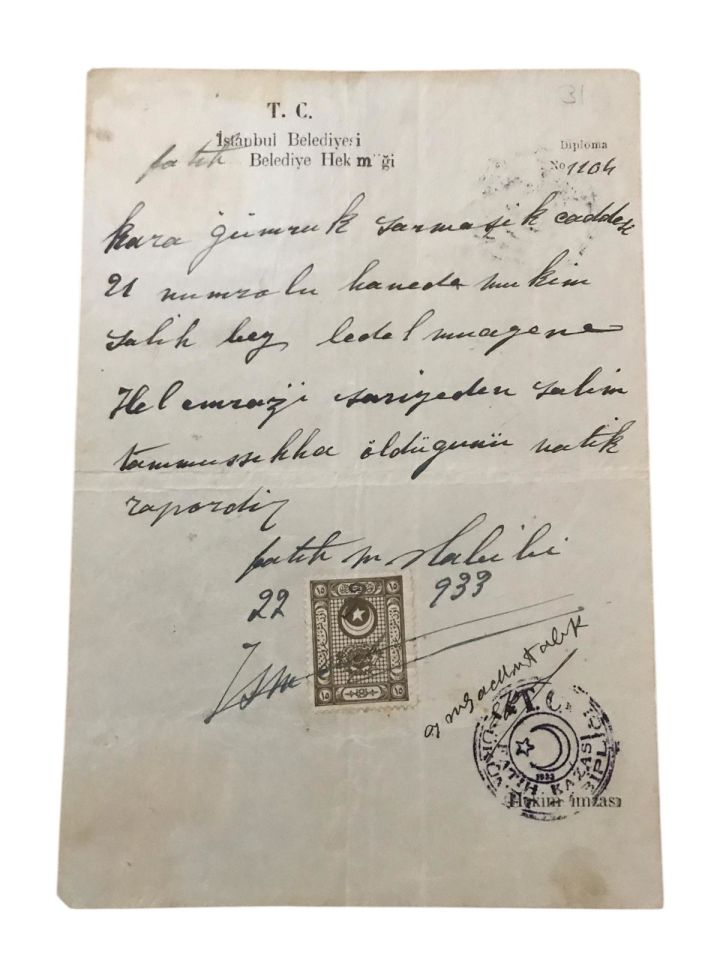 31
T. C.
İstanbul Belediyesi
fatih Belediye Hekimliği
Diploma
No 1104
kara gümruk sarmaşik caddesi
21 numrolu hanede mukim
salih bey ledel muayene
Hel emrazi sariyeden salim
tammussıhha öldügunü natik
rapordır
fatih m tabibi
22 933
T. C.
FATİH KAZASI
1933
Hekim imzası